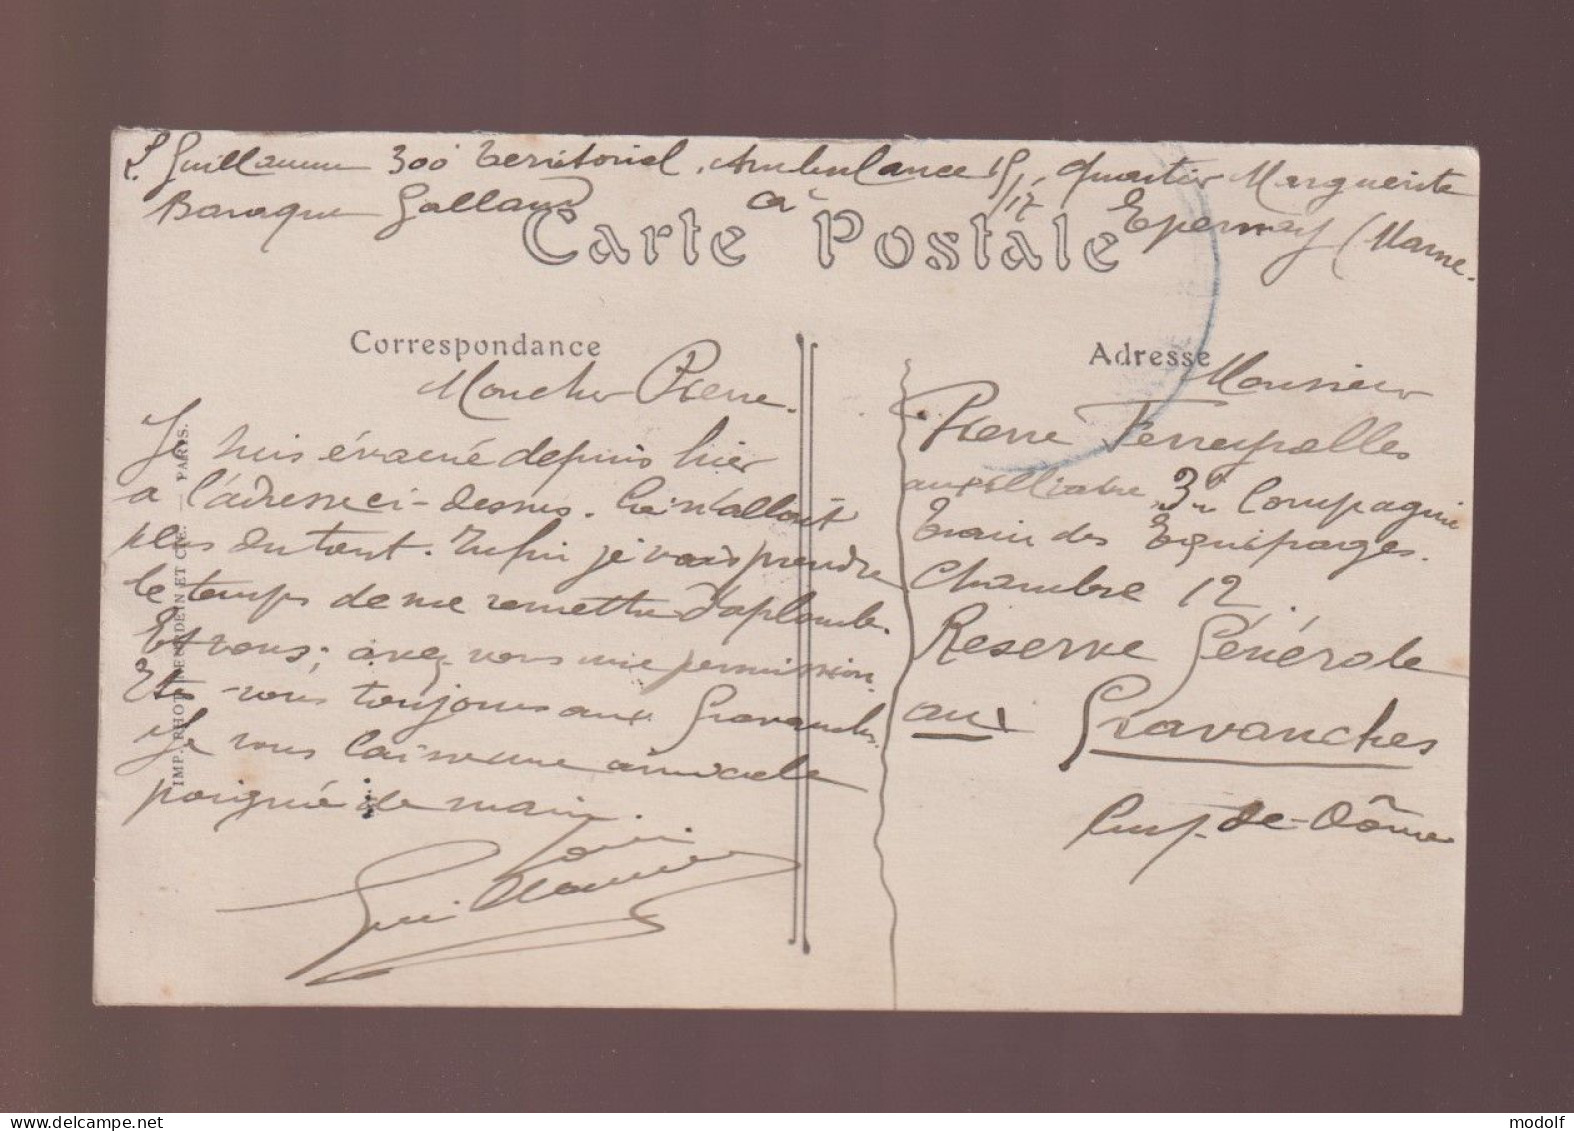 L. Guillaume 300e territorial, Ambulance 15/17, Quartier Marguerite
Baraque Galland à Epernay (Marne.
Carte Postale
Correspondance
Mon cher Pierre.
Je suis évacué depuis hier
a l'adresse ci-dessus. Cà n'allait
plus du tout. Enfin je vais prendre
le temps de me remettre d'aplomb.
Et vous; avez-vous une permission.
Etes-vous toujours aux Gravanches.
Je vous laisse une amicale
poignée de main.
Louis
Guillaume
IMP. PHOT. NEURDEIN ET CIE. — PARIS.
Adresse
Monsieur
Pierre Ferreyrolles
auxilliaire, 3e Compagnie
Train des Equipages.
Chambre 12.
Reserve Générale
aux Gravanches
Puy-de-Dôme
www.delcampe.net
modolf